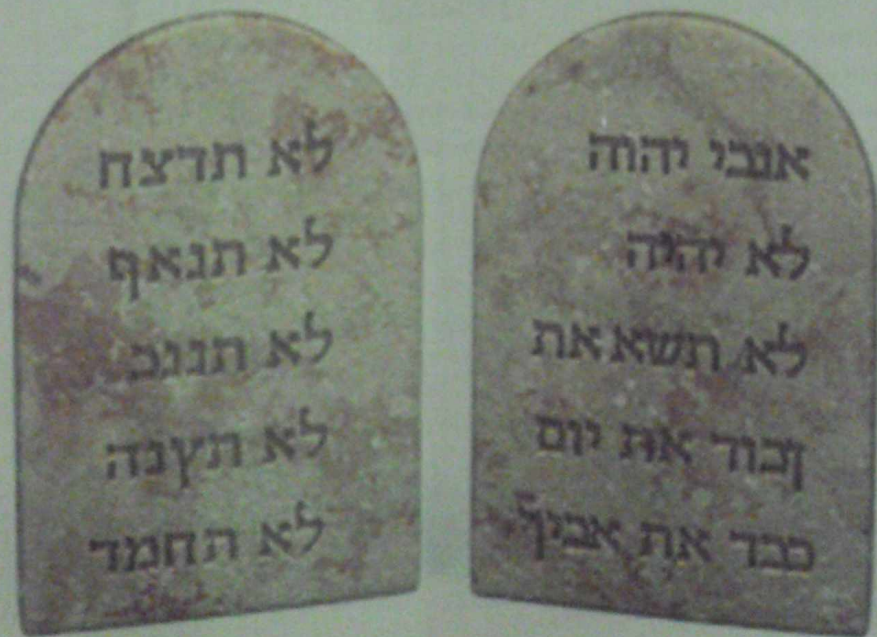 אנכי יהוה
לא יהיה
לא תשא את
זכור את יום
כבד את אביך
לא תרצח
לא תנאף
לא תגנב
לא תענה
לא תחמד